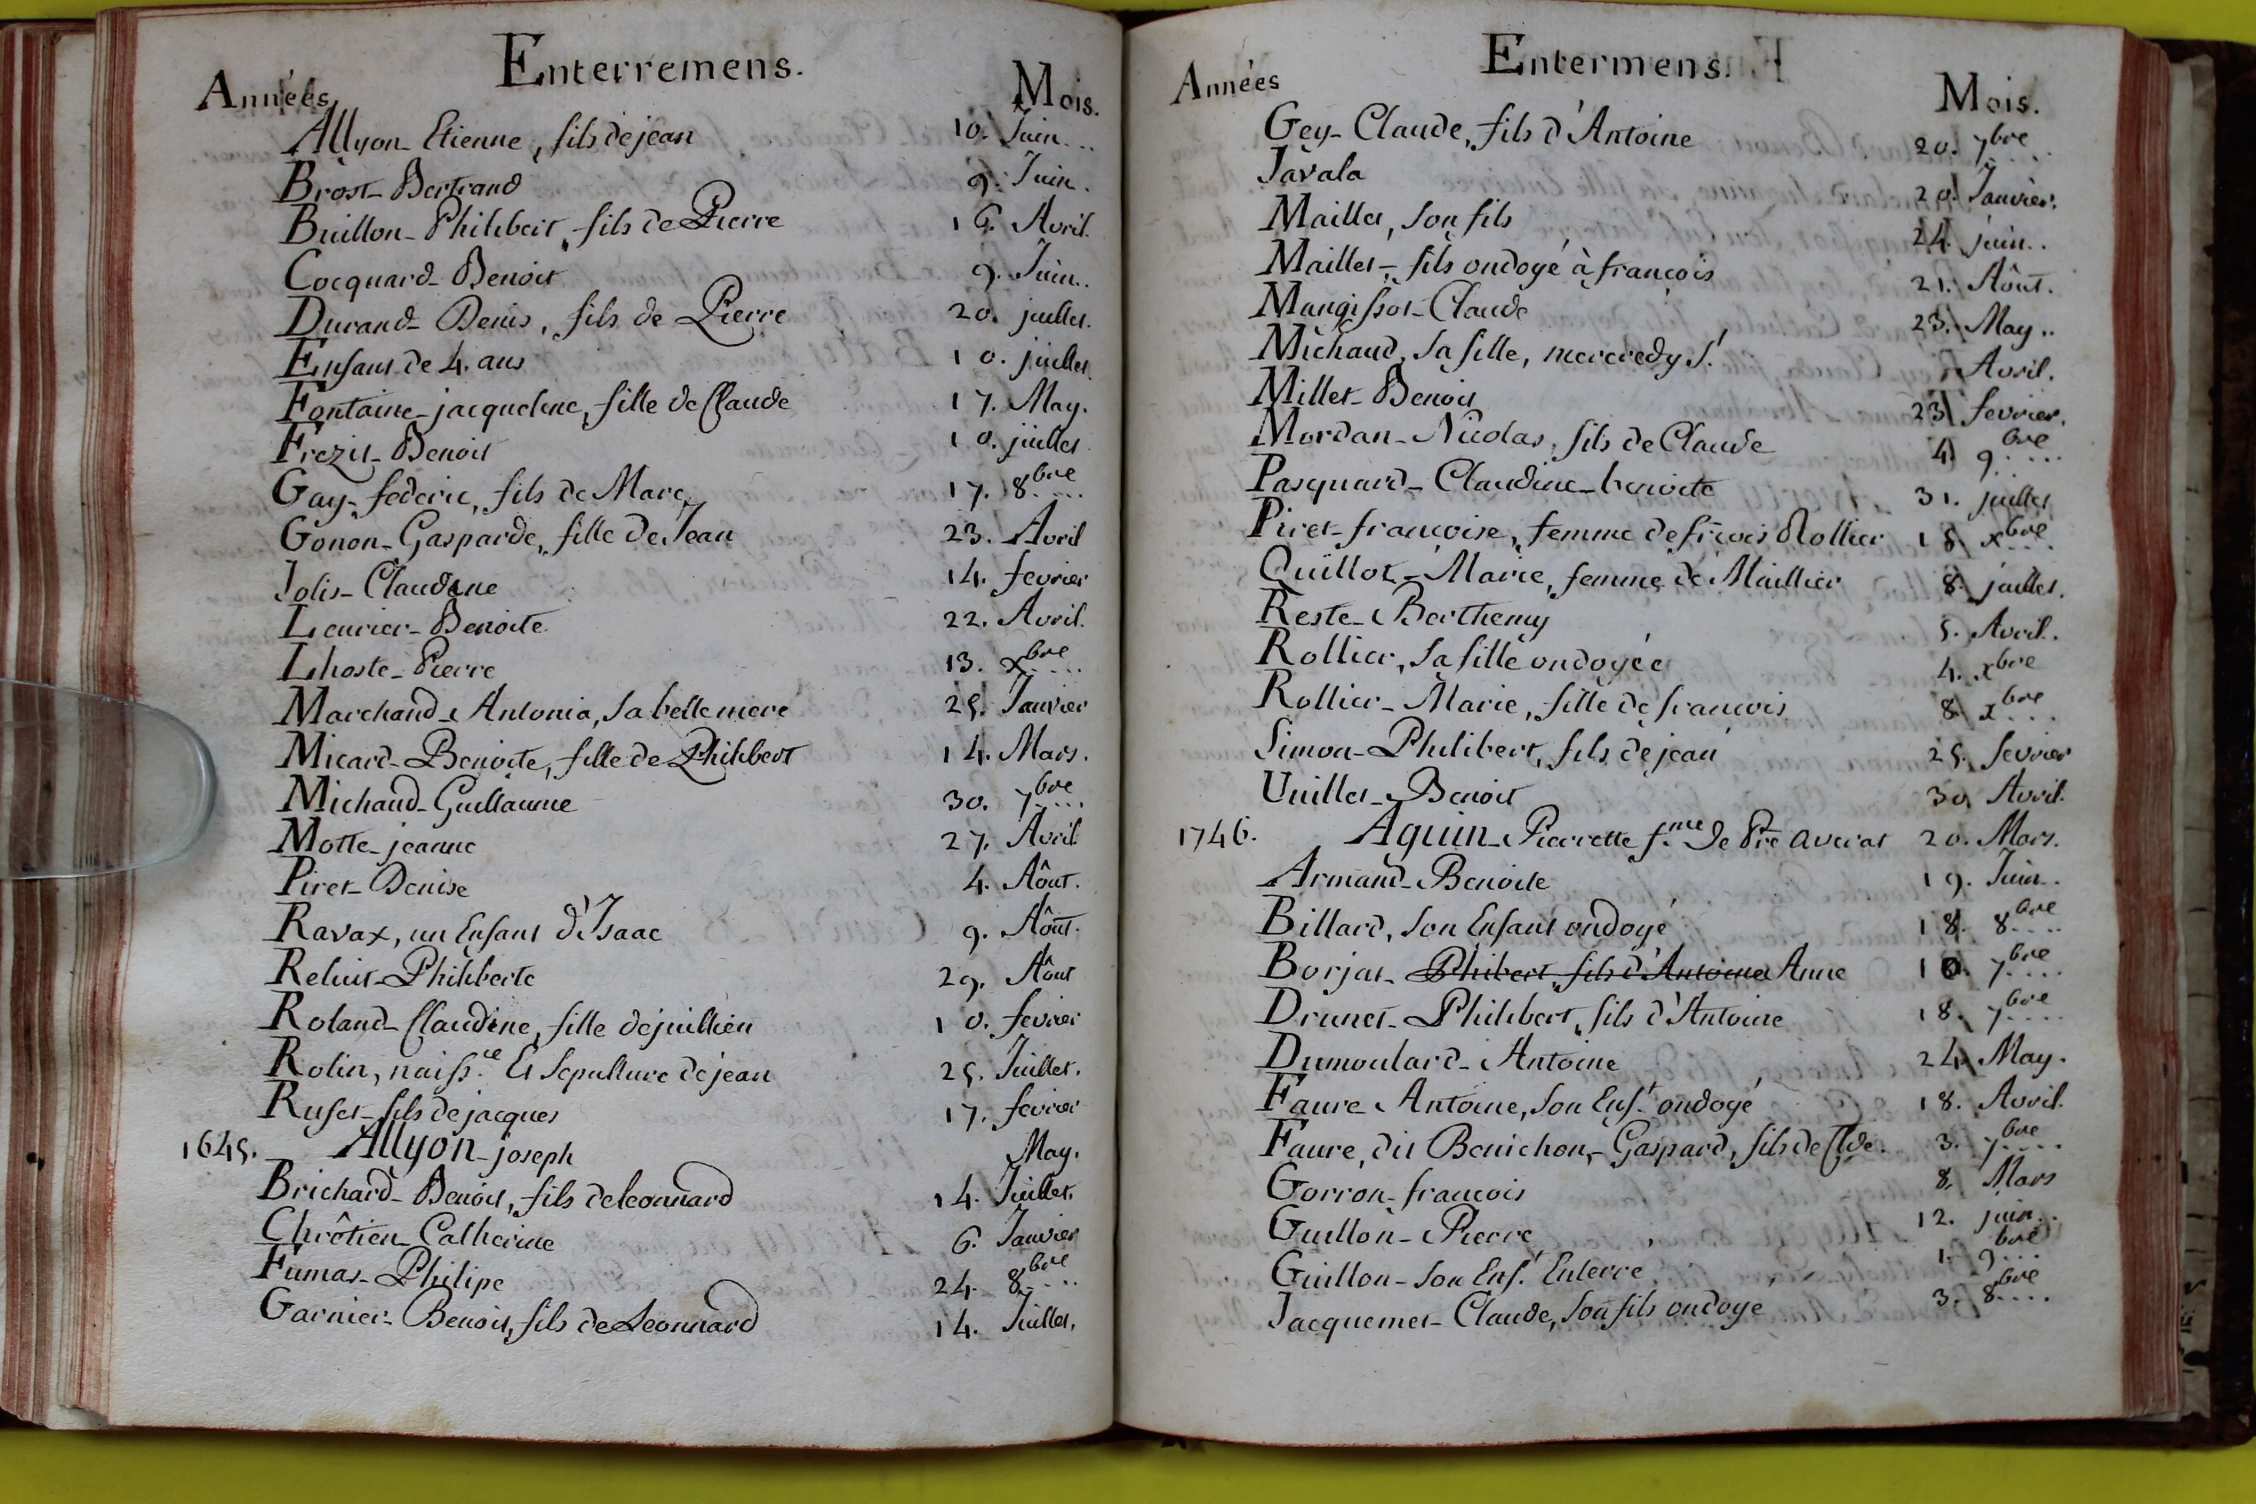 Enterremens.
Années Mois.
Allyon- Etienne, fils de jean 10. Juin...
Brost- Bertrand 9. Juin.
Buillon- Philibert, fils de Pierre 16. Avril.
Cocquard- Benoit 9. Juin..
Durand- Denis, fils de Pierre 20. juillet.
Enfant de 4. ans 10. juillet.
Fontaine- jacqueline, fille de Claude 17. May.
Frezit- Benoit 10. juillet
Gay- féderic, fils de Marc, 17. 8bre....
Gonon- Gasparde, fille de Jean 23. Avril
Jolis- Claudine 14. fevrier
Leurier- Benoite. 22. Avril.
Lhoste- Pierre 13. xbre....
Marchand- Antonia, sa belle mere 25. Janvier
Micard- Benoite, fille de Philibert 14. Mars.
Michaud- Guillaume 30. 7bre....
Motte- jeanne 27. Avril.
Piret- Denise 4. Aôut.
Ravax, un Enfant d'Isaac 9. Aôut.
Reluit- Philiberte 29. Aôut
Roland- Claudine, fille de juillien 10. fevrier
Rolin, naiss.ce Et Sepulture de jean 25. Juillet.
Rufet- fils de jacques 17. fevrier
1645. Allyon- joseph May.
Brichard- Benoit, fils de leonnard 14. Juillet.
Chrôtien- Catherine 6. Janvier
Fumas- Philipe 24. 8bre....
Garnier- Benoit, fils de Leonnard 14. Juillet.
Entermens.
Années Mois.
Gey- Claude, fils d'Antoine 20. 7bre....
Javala 20. Janvier.
Maillet, son fils 24. juin..
Maillet- fils ondoyé à françois 21. Aôut.
Mangissot- Claude 23. May..
Michaud, sa fille, mercredy s.t Avril.
Millet- Benoit 23. fevrier.
Mordan- Nicolas, fils de Claude 4. 9bre....
Pasquard- Claudine- benoite 31. juillet
Piret- françoise, femme de frçois Rollier 18. xbre....
Quillot- Marie, femme de Maillier 8. juillet.
Reste- Berthemy 5. Avril.
Rollier, sa fille ondoyée 4. xbre
Rollier- Marie, fille de francois 8. xbre....
Simon- Philibert, fils de jean 25. fevrier
Uuillet- Benoit 30. Avril.
1746. Aguin- Pierrette f.me de Pre averat 20. Mars.
Armand- Benoite 19. Juin..
Billard, son Enfant ondoyé 18. 8bre....
Borjat- Phibert, fils d'Antoine Anne 10. 7bre....
Drunet- Philibert, fils d'Antoine 18. 7bre....
Dumoulard- Antoine 24. May.
Faure- Antoine, son Enf.t ondoyé 18. Avril.
Faure, dit Benichon,- Gaspard, fils de Clde. 3. 7bre....
Gorron- francois 8. Mars
Guillon- Pierre 12. juin..
Guillon- son Enf.t Enterré 1. 9bre...
Jacquemet- Claude, son fils ondoyé 3. 8bre....